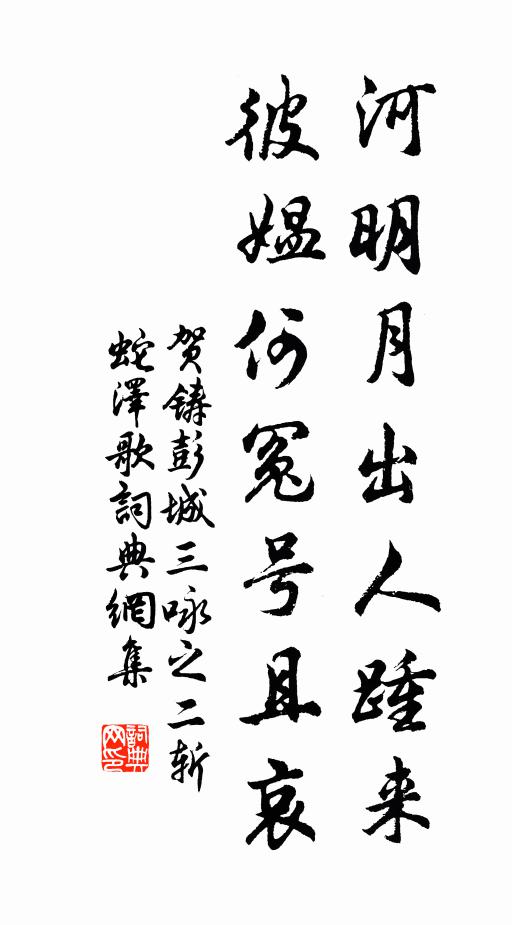 河明月出人踵来
彼媪何冤号且哀
贺铸彭城三咏之二斩
蛇澤歌詞典網集
詞典
网印